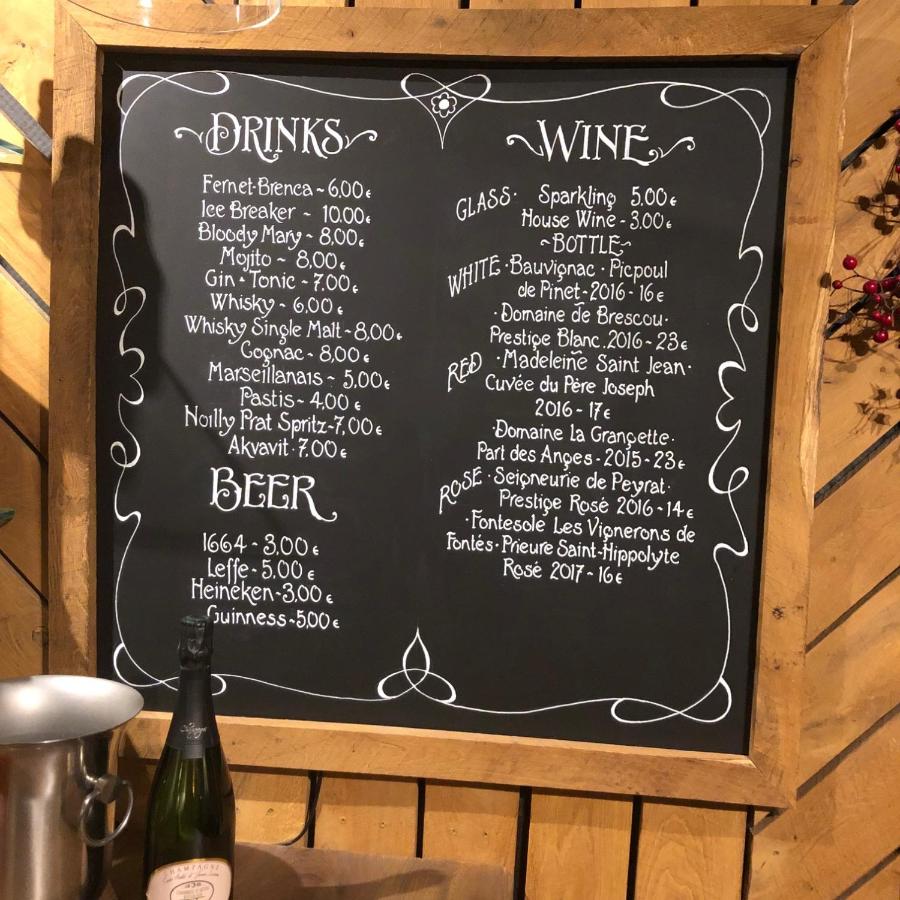 DRINKS
Fernet-Brenca ~ 6,00€
Ice Breaker ~ 10.00€
Bloody Mary ~ 8,00€
Mojito ~ 8,00€
Gin·Tonic ~ 7,00€
Whisky ~ 6,00€
Whisky Single Malt ~ 8,00€
Cognac ~ 8,00€
Marseillanais ~ 5,00€
Pastis ~ 4,00€
Noilly Prat Spritz ~ 7,00€
Akvavit · 7.00€
BEER
1664 - 3,00€
Leffe - 5,00€
Heineken - 3,00€
Guinness ~ 5,00€
WINE
GLASS · Sparkling 5,00€
House Wine - 3,00€
~BOTTLE~
WHITE · Bauvignac · Picpoul
de Pinet - 2016 - 16€
· Domaine de Brescou ·
Prestige Blanc . 2016 - 23€
RED · Madeleine Saint Jean ·
Cuvée du Père Joseph
2016 - 17€
· Domaine la Grangette ·
Part des Anges - 2015 - 23€
ROSE · Seigneurie de Peyrat ·
Prestige Rosé 2016 - 14€
· Fontesole Les Vignerons de
Fontés · Prieure Saint-Hippolyte
Rosé 2017 - 16€
CHAMPAGNE